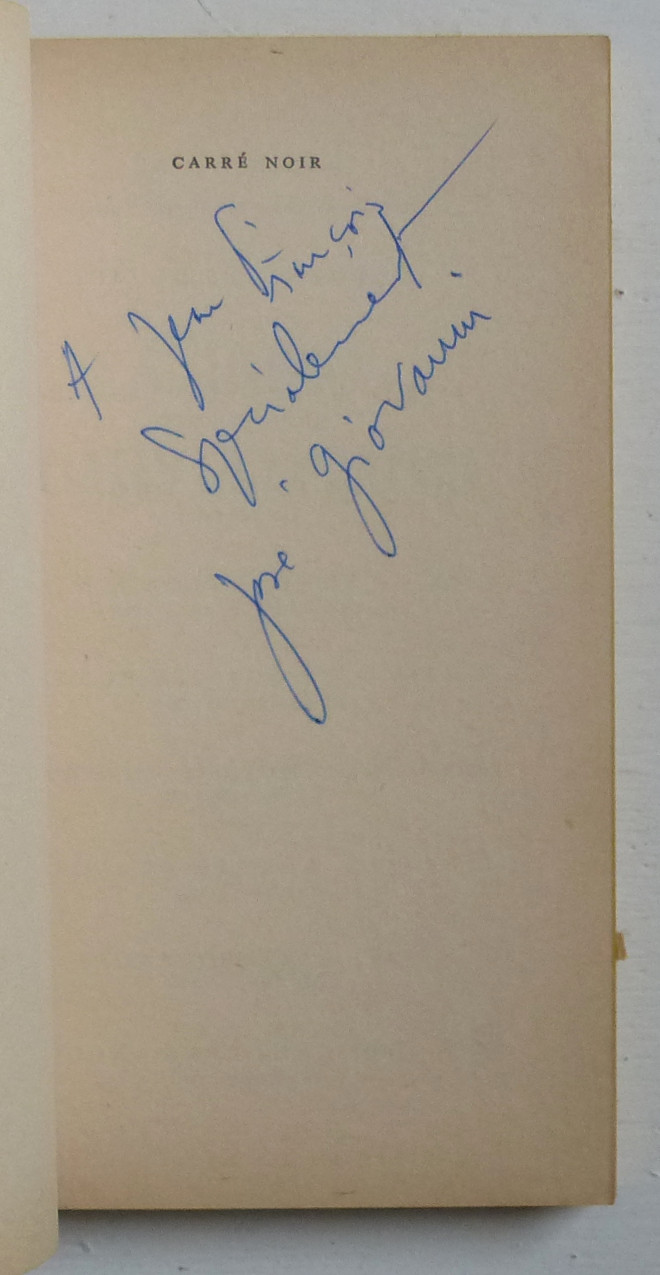 CARRÉ NOIR
A Jean François
Spécialement
José Giovanni